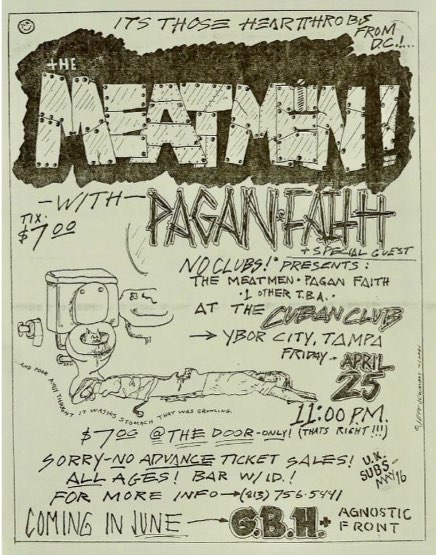 IT'S THOSE HEARTTHROBS
FROM
D.C.!...
THE
MEATMEN!
-WITH-
PAGAN FAITH
TIX.
$7.00
+ SPECIAL GUEST
NO CLUBS! PRESENTS:
THE MEATMEN · PAGAN FAITH
· 1 OTHER T.B.A..
AT THE CUBAN CLUB
→ YBOR CITY, TAMPA
FRIDAY - APRIL
25
11:00 P.M.
AND POOR ANDY THOUGHT IT WAS HIS STOMACH THAT WAS GROWLING.
$7.00 @ THE DOOR - ONLY! (THATS RIGHT!!!)
SORRY - NO ADVANCE TICKET SALES!
ALL AGES! BAR W/I.D.!
FOR MORE INFO → (813) 756-5441
U.K.
SUBS -
MAY 16
COMING IN JUNE → G.B.H. + AGNOSTIC
FRONT